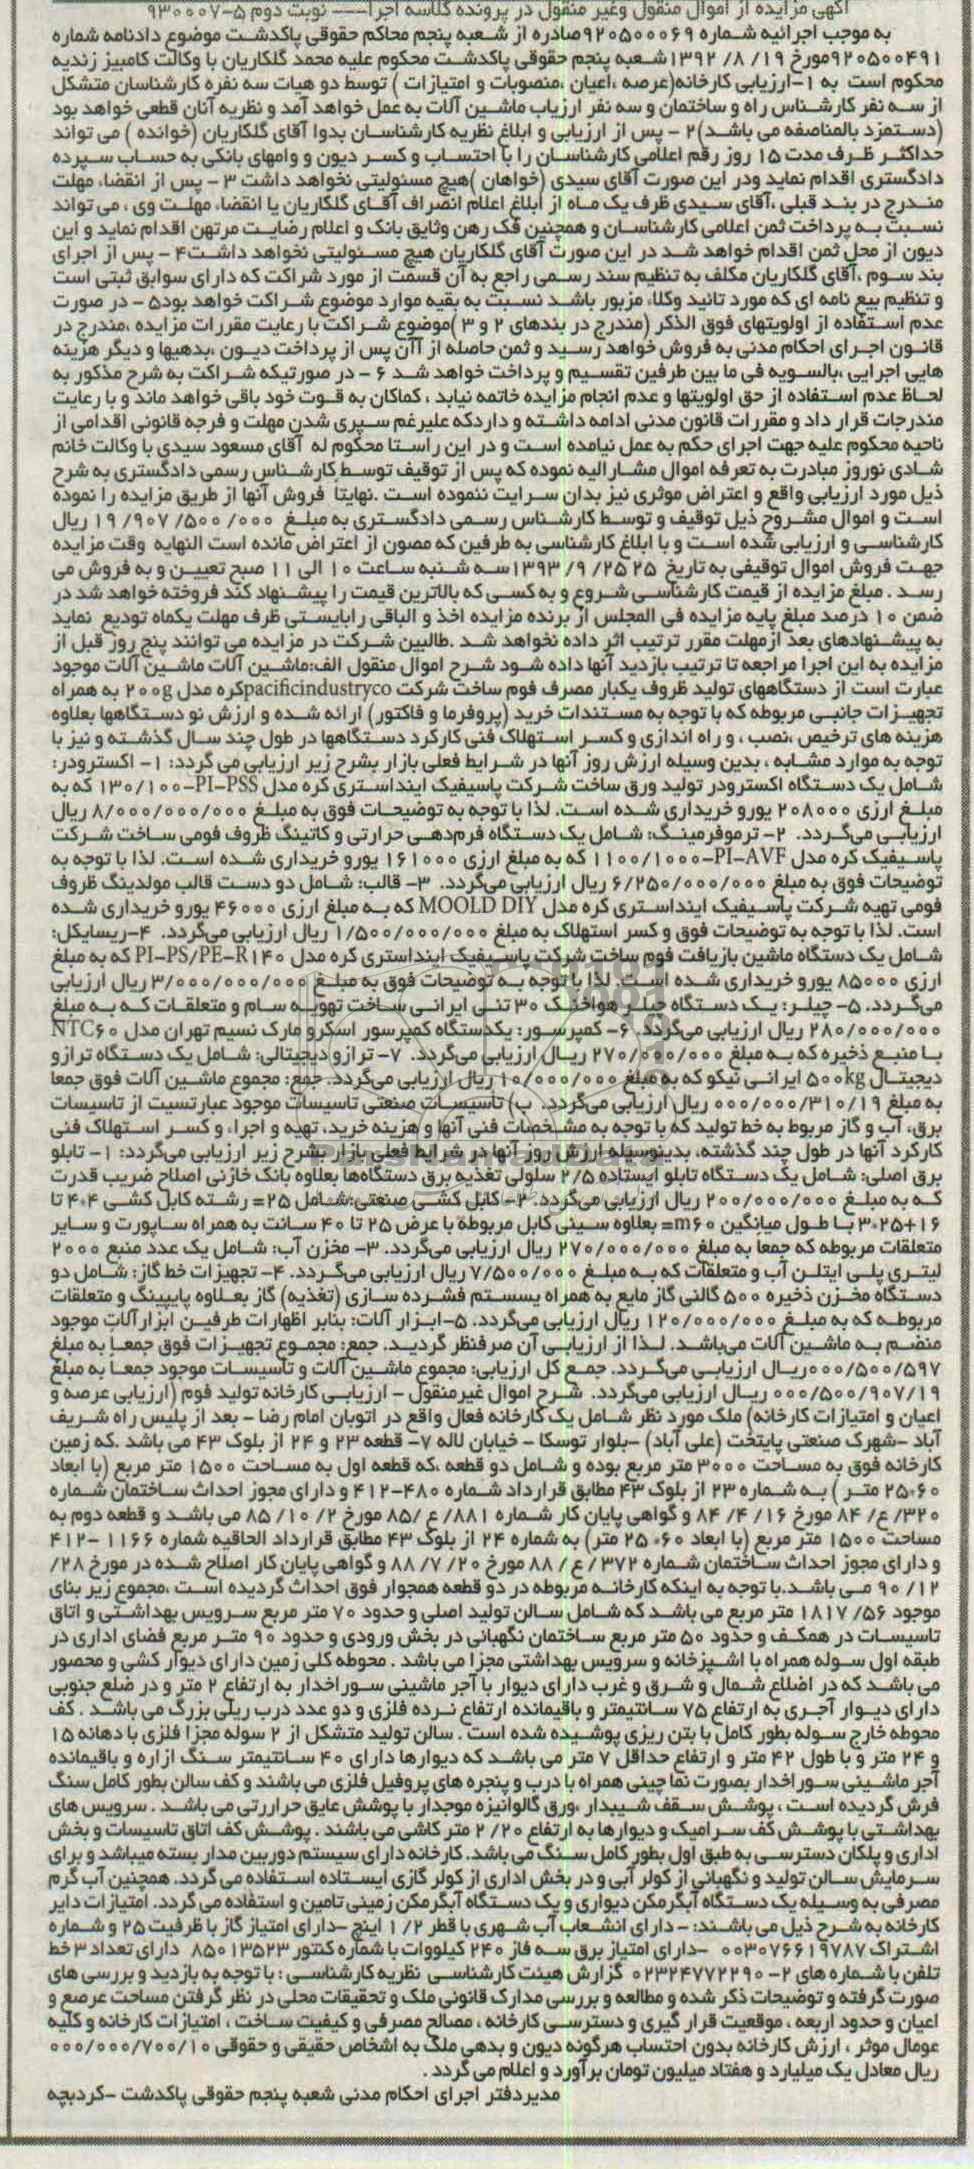 آگهی مزایده از اموال منقول وغیر منقول در پرونده کلاسه اجرا--- نوبت دوم ۵-۹۳۰۰۰۷
به موجب اجرائیه شماره ۹۲۰۵۰۰۰۶۹صادره از شعبه پنجم محاکم حقوقی پاکدشت موضوع دادنامه شماره
۹۲۰۵۰۰۴۹۱مورخ ۱۹/ ۸/ ۱۳۹۲شعبه پنجم حقوقی پاکدشت محکوم علیه محمد گلکاریان با وکالت کامبیز زندیه
محکوم است به ۱-ارزیابی کارخانه(عرصه ،اعیان ،منصوبات و امتیازات ) توسط دو هیات سه نفره کارشناسان متشکل
از سه نفر کارشناس راه و ساختمان و سه نفر ارزیاب ماشین آلات به عمل خواهد آمد و نظریه آنان قطعی خواهد بود
(دستمزد بالمناصفه می باشد)۲ - پس از ارزیابی و ابلاغ نظریه کارشناسان بدوا آقای گلکاریان (خوانده ) می تواند
حداکثر ظرف مدت ۱۵ روز رقم اعلامی کارشناسان را با احتساب و کسر دیون و وامهای بانکی به حساب سپرده
دادگستری اقدام نماید ودر این صورت آقای سیدی (خواهان )هیچ مسئولیتی نخواهد داشت ۳ - پس از انقضاء مهلت
مندرج در بند قبلی ،آقای سیدی ظرف یک ماه از ابلاغ اعلام انصراف آقای گلکاریان یا انقضاء مهلت وی ، می تواند
نسبت به پرداخت ثمن اعلامی کارشناسان و همچنین فک رهن وثایق بانک و اعلام رضایت مرتهن اقدام نماید و این
دیون از محل ثمن اقدام خواهد شد در این صورت آقای گلکاریان هیچ مسئولیتی نخواهد داشت۴ - پس از اجرای
بند سوم ،آقای گلکاریان مکلف به تنظیم سند رسمی راجع به آن قسمت از مورد شراکت که دارای سوابق ثبتی است
و تنظیم بیع نامه ای که مورد تائید وکلاء مزبور باشد نسبت به بقیه موارد موضوع شراکت خواهد بود۵ - در صورت
عدم استفاده از اولویتهای فوق الذکر (مندرج در بندهای ۲ و ۳ )موضوع شراکت با رعایت مقررات مزایده ،مندرج در
قانون اجرای احکام مدنی به فروش خواهد رسید و ثمن حاصله از آان پس از پرداخت دیون ،بدهیها و دیگر هزینه
هایی اجرایی ،بالسویه فی ما بین طرفین تقسیم و پرداخت خواهد شد ۶ - در صورتیکه شراکت به شرح مذکور به
لحاظ عدم استفاده از حق اولویتها و عدم انجام مزایده خاتمه نیابد ، کماکان به قوت خود باقی خواهد ماند و با رعایت
مندرجات قرار داد و مقررات قانون مدنی ادامه داشته و داردکه علیرغم سپری شدن مهلت و فرجه قانونی اقدامی از
ناحیه محکوم علیه جهت اجرای حکم به عمل نیامده است و در این راستا محکوم له آقای مسعود سیدی با وکالت خانم
شادی نوروز مبادرت به تعرفه اموال مشارالیه نموده که پس از توقیف توسط کارشناس رسمی دادگستری به شرح
ذیل مورد ارزیابی واقع و اعتراض موثری نیز بدان سرایت ننموده است .نهایتا فروش آنها از طریق مزایده را نموده
است و اموال مشروح ذیل توقیف و توسط کارشناس رسمی دادگستری به مبلغ ۰۰۰/ ۵۰۰/ ۹۰۷/ ۱۹ ریال
کارشناسی و ارزیابی شده است و با ابلاغ کارشناسی به طرفین که مصون از اعتراض مانده است النهایه وقت مزایده
جهت فروش اموال توقیفی به تاریخ ۲۵ ۲۵/ ۹/ ۱۳۹۳سه شنبه ساعت ۱۰ الی ۱۱ صبح تعیین و به فروش می
رسد . مبلغ مزایده از قیمت کارشناسی شروع و به کسی که بالاترین قیمت را پیشنهاد کند فروخته خواهد شد در
ضمن ۱۰ درصد مبلغ پایه مزایده فی المجلس از برنده مزایده اخذ و الباقی را بایستی ظرف مهلت یکماه تودیع نماید
به پیشنهادهای بعد ازمهلت مقرر ترتیب اثر داده نخواهد شد .طالبین شرکت در مزایده می توانند پنج روز قبل از
مزایده به این اجرا مراجعه تا ترتیب بازدید آنها داده شود شرح اموال منقول الف:ماشین آلات ماشین آلات موجود
عبارت است از دستگاههای تولید ظروف یکبار مصرف فوم ساخت شرکت pacificindustrycoکره مدل ۲۰۰g به همراه
تجهیزات جانبی مربوطه که با توجه به مستندات خرید (پروفرما و فاکتور) ارائه شده و ارزش نو دستگاهها بعلاوه
هزینه های ترخیص ،نصب ، و راه اندازی و کسر استهلاک فنی کارکرد دستگاهها در طول چند سال گذشته و نیز با
توجه به موارد مشابه ، بدین وسیله ارزش روز آنها در شرایط فعلی بازار بشرح زیر ارزیابی می گردد: ۱- اکسترودر:
شامل یک دستگاه اکسترودر تولید ورق ساخت شرکت پاسیفیک اینداستری کره مدل PI-PSS-۱۳۰/۱۰۰ که به
مبلغ ارزی ۲۰۸۰۰۰ یورو خریداری شده است. لذا با توجه به توضیحات فوق به مبلغ ۸/۰۰۰/۰۰۰/۰۰۰ ریال
ارزیابی می‌گردد. ۲- ترموفرمینگ: شامل یک دستگاه فرم‌دهی حرارتی و کاتینگ ظروف فومی ساخت شرکت
پاسیفیک کره مدل PI-AVF-۱۱۰۰/۱۰۰۰ که به مبلغ ارزی ۱۶۱۰۰۰ یورو خریداری شده است. لذا با توجه به
توضیحات فوق به مبلغ ۶/۲۵۰/۰۰۰/۰۰۰ ریال ارزیابی می‌گردد. ۳- قالب: شامل دو دست قالب مولدینگ ظروف
فومی تهیه شرکت پاسیفیک اینداستری کره مدل MOOLD DIY که به مبلغ ارزی ۴۶۰۰۰ یورو خریداری شده
است. لذا با توجه به توضیحات فوق و کسر استهلاک به مبلغ ۱/۵۰۰/۰۰۰/۰۰۰ ریال ارزیابی می‌گردد. ۴-ریسایکل:
شامل یک دستگاه ماشین بازیافت فوم ساخت شرکت پاسیفیک اینداستری کره مدل PI-PS/PE-R۱۴۰ که به مبلغ
ارزی ۸۵۰۰۰ یورو خریداری شده است. لذا با توجه به توضیحات فوق به مبلغ ۳/۰۰۰/۰۰۰/۰۰۰ ریال ارزیابی
می‌گردد. ۵- چیلر: یک دستگاه چیلر هواخنک ۳۰ تنی ایرانی ساخت تهویه سام و متعلقات که به مبلغ
۲۸۰/۰۰۰/۰۰۰ ریال ارزیابی می‌گردد. ۶- کمپرسور: یکدستگاه کمپرسور اسکرو مارک نسیم تهران مدل NTC۶۰
با منبع ذخیره که به مبلغ ۲۷۰/۰۰۰/۰۰۰ ریال ارزیابی می‌گردد. ۷- ترازو دیجیتالی: شامل یک دستگاه ترازو
دیجیتال ۵۰۰kg ایرانی نیکو که به مبلغ ۱۰/۰۰۰/۰۰۰ ریال ارزیابی می‌گردد. جمع: مجموع ماشین آلات فوق جمعا
به مبلغ ۰۰۰/۰۰۰/۳۱۰/۱۹ ریال ارزیابی می‌گردد. ب) تاسیسات صنعتی تاسیسات موجود عبارتست از تاسیسات
برق، آب و گاز مربوط به خط تولید که با توجه به مشخصات فنی آنها و هزینه خرید، تهیه و اجراء و کسر استهلاک فنی
کارکرد آنها در طول چند گذشته، بدینوسیله ارزش روز آنها در شرایط فعلی بازار بشرح زیر ارزیابی می‌گردد: ۱- تابلو
برق اصلی: شامل یک دستگاه تابلو ایستاده ۲/۵ سلولی تغذیه برق دستگاه‌ها بعلاوه بانک خازنی اصلاح ضریب قدرت
که به مبلغ ۲۰۰/۰۰۰/۰۰۰ ریال ارزیابی می‌گردد. ۲- کابل کشی صنعتی:شامل ۲۵= رشته کابل کشی ۴۰۴ تا
۳۰۲۵+۱۶ با طول میانگین m۶۰= بعلاوه سینی کابل مربوطه با عرض ۲۵ تا ۴۰ سانت به همراه ساپورت و سایر
متعلقات مربوطه که جمعا به مبلغ ۲۷۰/۰۰۰/۰۰۰ ریال ارزیابی می‌گردد. ۳- مخزن آب: شامل یک عدد منبع ۲۰۰۰
لیتری پلی ایتلن آب و متعلقات که به مبلغ ۷/۵۰۰/۰۰۰ ریال ارزیابی می‌گردد. ۴- تجهیزات خط گاز: شامل دو
دستگاه مخزن ذخیره ۵۰۰ گالنی گاز مایع به همراه سیستم فشرده سازی (تغذیه) گاز بعلاوه پایپینگ و متعلقات
مربوطه که به مبلغ ۱۲۰/۰۰۰/۰۰۰ ریال ارزیابی می‌گردد. ۵-ابزار آلات: بنابر اظهارات طرفین ابزارآلات موجود
منضم به ماشین آلات می‌باشد. لذا از ارزیابی آن صرفنظر گردید. جمع: مجموع تجهیزات فوق جمعا به مبلغ
۰۰۰/۵۰۰/۵۹۷ریال ارزیابی می‌گردد. جمع کل ارزیابی: مجموع ماشین آلات و تاسیسات موجود جمعا به مبلغ
۰۰۰/۵۰۰/۹۰۷/۱۹ ریال ارزیابی می‌گردد. شرح اموال غیرمنقول - ارزیابی کارخانه تولید فوم (ارزیابی عرصه و
اعیان و امتیازات کارخانه) ملک مورد نظر شامل یک کارخانه فعال واقع در اتوبان امام رضا - بعد از پلیس راه شریف
آباد -شهرک صنعتی پایتخت (علی آباد) -بلوار توسکا - خیابان لاله ۷- قطعه ۲۳ و ۲۴ از بلوک ۴۳ می باشد .که زمین
کارخانه فوق به مساحت ۳۰۰۰ متر مربع بوده و شامل دو قطعه ،که قطعه اول به مساحت ۱۵۰۰ متر مربع (با ابعاد
۲۵۰۶۰ متر ) به شماره ۲۳ از بلوک ۴۳ مطابق قرارداد شماره ۴۸۰-۴۱۲ و دارای مجوز احداث ساختمان شماره
۳۲۰/ ع/ ۸۴ مورخ ۱۶/ ۴/ ۸۴ و گواهی پایان کار شماره ۸۸۱/ ع /۸۵ مورخ ۲/ ۱۰/ ۸۵ می باشد و قطعه دوم به
مساحت ۱۵۰۰ متر مربع (با ابعاد ۶۰۰ ۲۵ متر) به شماره ۲۴ از بلوک ۴۳ مطابق قرارداد الحاقیه شماره ۱۱۶۶ -۴۱۲
و دارای مجوز احداث ساختمان شماره ۳۷۲/ ع/ ۸۸ مورخ ۲۰/ ۷/ ۸۸ و گواهی پایان کار اصلاح شده در مورخ ۲۸/
۱۲/ ۹۰ می باشد.با توجه به اینکه کارخانه مربوطه در دو قطعه همجوار فوق احداث گردیده است ،مجموع زیر بنای
موجود ۵۶/ ۱۸۱۷ متر مربع می باشد که شامل سالن تولید اصلی و حدود ۷۰ متر مربع سرویس بهداشتی و اتاق
تاسیسات در همکف و حدود ۵۰ متر مربع ساختمان نگهبانی در بخش ورودی و حدود ۹۰ متر مربع فضای اداری در
طبقه اول سوله همراه با اشپزخانه و سرویس بهداشتی مجزا می باشد . محوطه کلی زمین دارای دیوار کشی و محصور
می باشد که در اضلاع شمال و شرق و غرب دارای دیوار با آجر ماشینی سوراخدار به ارتفاع ۲ متر و در ضلع جنوبی
دارای دیوار آجری به ارتفاع ۷۵ سانتیمتر و باقیمانده ارتفاع نرده فلزی و دو عدد درب ریلی بزرگ می باشد . کف
محوطه خارج سوله بطور کامل با بتن ریزی پوشیده شده است . سالن تولید متشکل از ۲ سوله مجزا فلزی با دهانه ۱۵
و ۲۴ متر و با طول ۴۲ متر و ارتفاع حداقل ۷ متر می باشد که دیوارها دارای ۴۰ سانتیمتر سنگ ازاره و باقیمانده
آجر ماشینی سوراخدار بصورت نما چینی همراه با درب و پنجره های پروفیل فلزی می باشند و کف سالن بطور کامل سنگ
فرش گردیده است ، پوشش سقف شیبدار ،ورق گالوانیزه موجدار با پوشش عایق حراررتی می باشد . سرویس های
بهداشتی با پوشش کف سرامیک و دیوارها به ارتفاع ۲۰/ ۲ متر کاشی می باشند . پوشش کف اتاق تاسیسات و بخش
اداری و پلکان دسترسی به طبق اول بطور کامل سنگ می باشد. کارخانه دارای سیستم دوربین مدار بسته میباشد و برای
سرمایش سالن تولید و نگهبانی از کولر آبی و در بخش اداری از کولر گازی ایستاده استفاده می گردد. همچنین آب گرم
مصرفی به وسیله یک دستگاه آبگرمکن دیواری و یک دستگاه آبگرمکن زمینی تامین و استفاده می گردد. امتیازات دایر
کارخانه به شرح ذیل می باشند: - دارای انشعاب آب شهری با قطر ۱/۲ اینچ -دارای امتیاز گاز با ظرفیت ۲۵ و شماره
اشتراک ۰۰۳۰۷۶۶۱۹۷۸۷ -دارای امتیاز برق سه فاز ۲۴۰ کیلووات با شماره کنتور ۸۵۰۱۳۵۲۳ دارای تعداد ۳ خط
تلفن با شماره های ۲-۰۲۳۲۴۷۷۲۲۹۰ گزارش هیئت کارشناسی نظریه کارشناسی : با توجه به بازدید و بررسی های
صورت گرفته و توضیحات ذکر شده و مطالعه و بررسی مدارک قانونی ملک و تحقیقات محلی در نظر گرفتن مساحت عرصع و
اعیان و حدود اربعه ، موقعیت قرار گیری و دسترسی کارخانه ، مصالح مصرفی و کیفیت ساخت ، امتیازات کارخانه و کلیه
عومال موثر ، ارزش کارخانه بدون احتساب هرگونه دیون و بدهی ملک به اشخاص حقیقی و حقوقی ۰۰۰/۰۰۰/۷۰۰/۱۰
ریال معادل یک میلیارد و هفتاد میلیون تومان برآورد و اعلام می گردد .
مدیردفتر اجرای احکام مدنی شعبه پنجم حقوقی پاکدشت -کردبچه